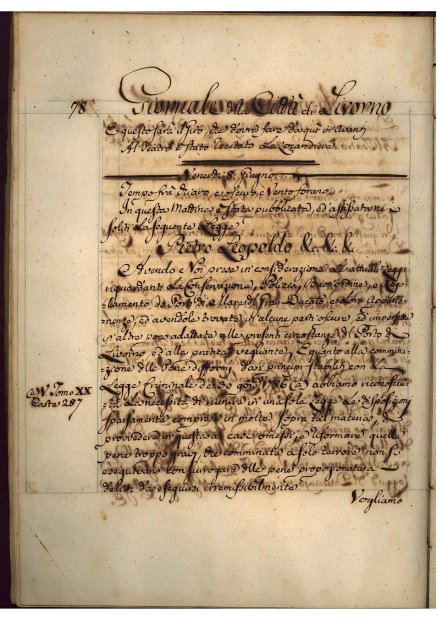 78
Giornale della Città di Livorno
E questo sarà il Giro, che dovrà fare da qui in avanti
Al Teatro è stato Recitato La Locandiera
Venerdì 8. Giugno
Tempo frà Chiaro, e oscuro, e Vento forano
In questa Mattina è Stata pubblicata, ed affissa
soliti La seguente Legge
Pietro Leopoldo &c. &c. &c.
Avendo Noi preso in considerazione Le attuali Leggi
riguardanti La Conservazione, Polizia, Buon ordine, e Rego-
lamento dei Porti del Gran Ducato, e Loro Apparte-
nenze, ed avendole trovate in alcune parti oscure, ed imperfette
in altre poco adattate alle presenti circostanze del Porto di
Livorno, ed alle pratiche veglianti, e quanto alla commina-
zione delle Pene difformi dai principj stabiliti con La
Legge Criminale de 30 9bre 1786
La necessità di riunire in una sola Legge Le disposizioni
sparsamente comprese in molte sopra tal materia,
provvedere in questa ai casi omessi, e riformare quelle
pene troppo gravi, che comminate a solo terrore non si
eseguivano con surrogare delle pene proporzionate a
delitti da eseguirsi irremissibilmente
Vogliamo
Tomo XX
Carte 287